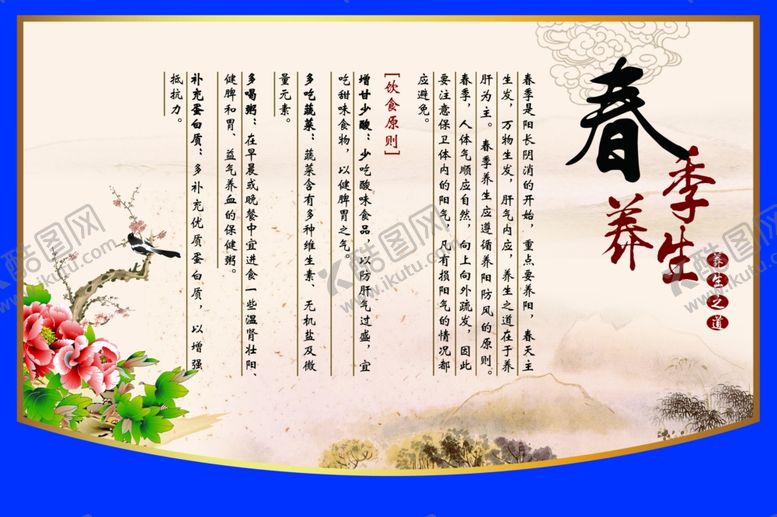 春季养生
养生之道
春季是阳长阴消的开始，重点要养阳，春天主
生发，万物生发，肝气内应，养生之道在于养
肝为主。春季养生应遵循养阳防风的原则。
春季，人体气顺应自然，向上向外疏发，因此
要注意保卫体内的阳气，凡有损阳气的情况都
应避免。
[饮食原则]
增甘少酸：少吃酸味食品，以防肝气过盛，宜
吃甜味食物，以健脾胃之气。
多吃蔬菜：蔬菜含有多种维生素、无机盐及微
量元素。
多喝粥：在早晨或晚餐中宜进食一些温肾壮阳、
健脾和胃、益气养血的保健粥。
补充蛋白质：多补充优质蛋白质，以增强
抵抗力。
酷图网
www.ikutu.com
酷图网
www.ikutu.com
酷图网
www.ikutu.com